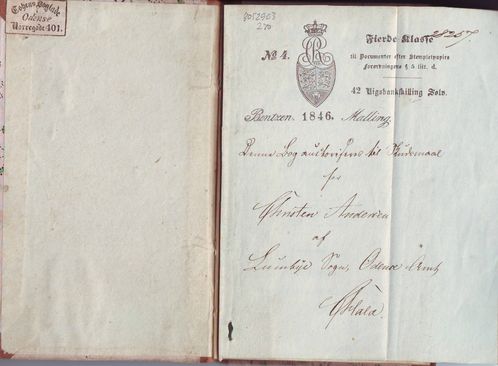 Cohens Boglade
i
Odense
Vorregade 401.
8052963
270
No 4.
Fierde Klasse
28257.
til Documenter efter Stempletpapirs
Forordningens § 5 litt. d.
42 Rigsbankskilling Sølv.
Bentzen. 1846. Malling.
Denne Bog autoriseres til Skudsmaal
for
Christen Andersen
af
Lumbye Sogn, Odense Amt